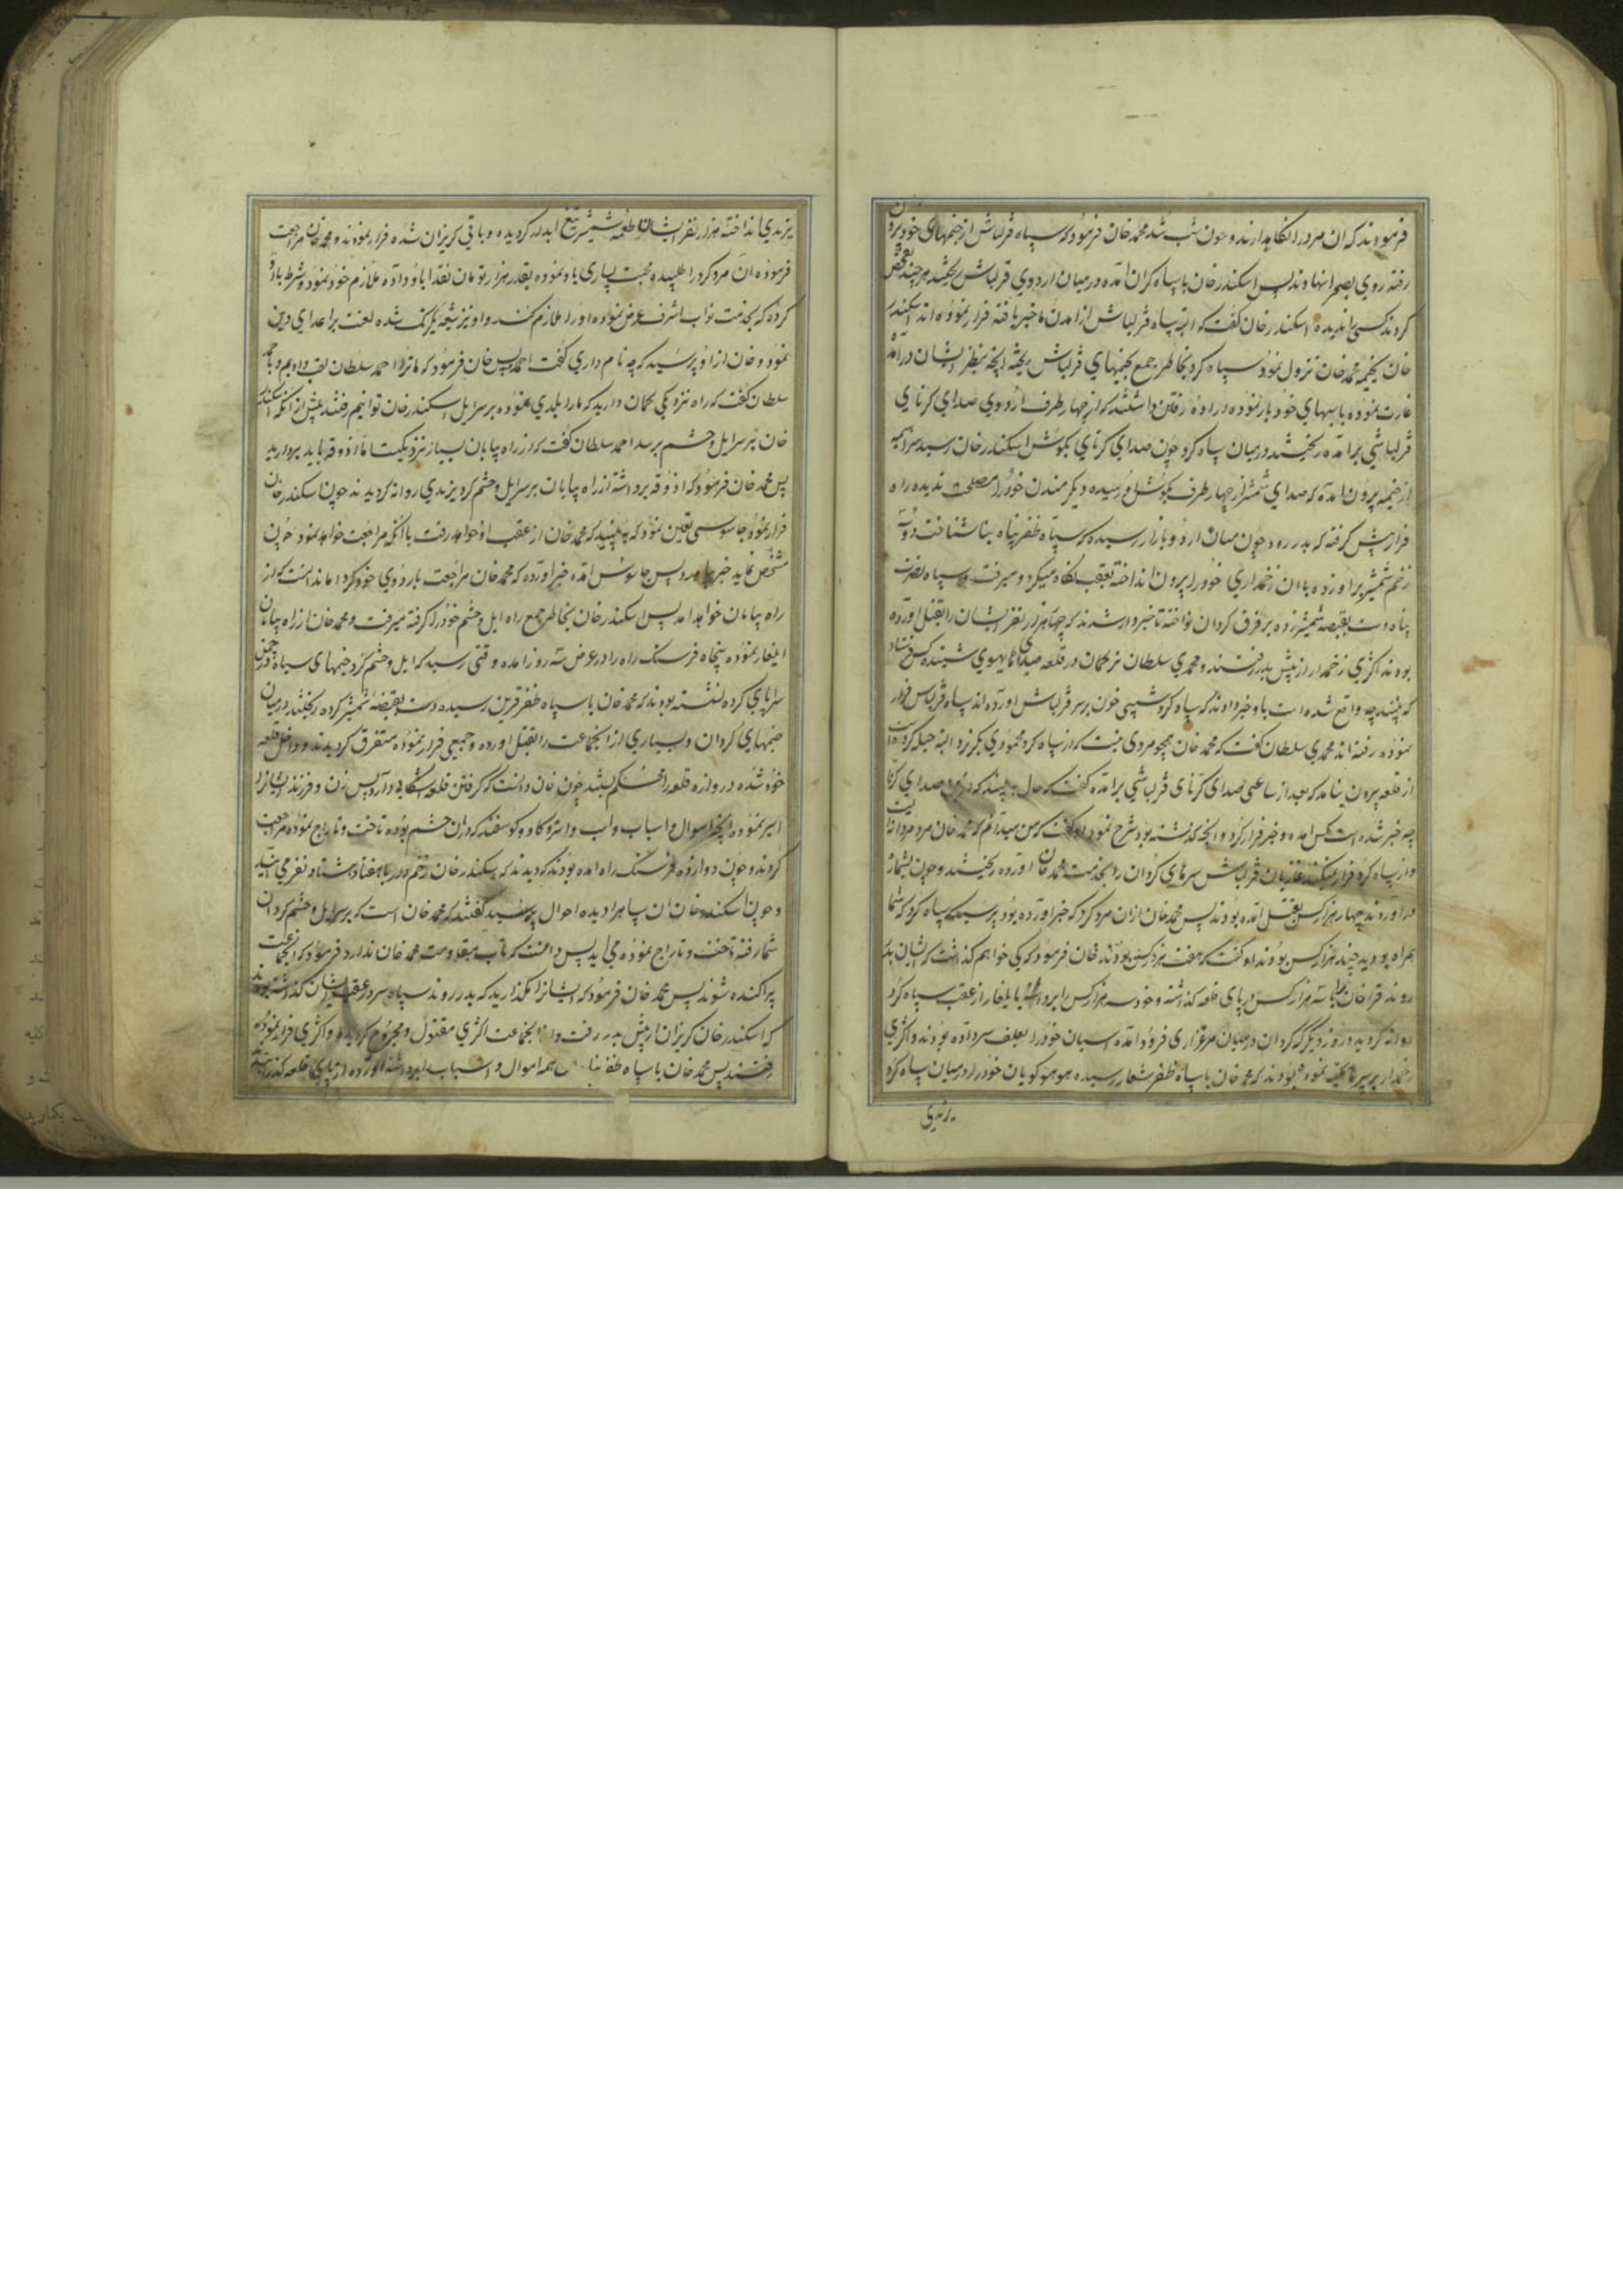 فرمودند که ان مرد را نکاهدارند و چون شب شد محمد خان فرمود که سپاه قزلباش از خیمهای خود بیرون
رفته روی بصحرا نهادند پس اسکندر خان با سپاه کران امده در میان اردوی قزلباش ریختند هر چند تفحص
کردند کسی را ندیدند اسکندر خان کفت که البته سپاه قزلباش از امدن ما خبر یافته فرار نموده اند اسکندر
خان بخیمه محمد خان نزول نمود سپاه کرد بخاطر جمع بخیمهای قزلباش ریخته انچه بنظر ایشان در امد
غارت نموده باسبهای خود بار نموده اراده رفتن داشتند که از چهار طرف اردوی صدای کرنای
قزلباشی بر امده ریختند در میان سپاه کرد چون صدای کرنای بکوش اسکندر خان رسید سراسیمه
از خیمه بیرون امد که صدای شمشیر از چهار طرف بکوش او رسیده دیکر مندن خود را مصلحت ندیده راه
فرار پیش کرفته که بدر رود چون میان اردو بازار رسیده که سپاه ظفر پناه بنا شناخت دو سه
زخم شمشیر بر او زده با ان زخمداری خود را بیرون انداخته بعقب نکاه میکرد و میرفت و سپاه نصرت
پناه دست بقبضه شمشیر زده بر فرق کردان نواخته تا خبردار شدند که چهار هزار نفر ایشان را بقتل اورده
بودند اکثری زخمدار از پیش بدر رفتند و محمدی سلطان ترکمان در قلعه صدای هایهوی شنیده کس فرستاد
که ببیند چه واقع شده است باو خبر دادند که سپاه کرد شبیخون بر سر قزلباش اورده اند سپاه قزلباش فرار
نموده رفته اند محمدی سلطان کفت که محمد خان همچو مردی نیست که از سپاه کرد محمودی بکریزد البته حیله کرده است
از قلعه بیرون نیامد که بعد از ساعتی صدای کرنای قزلباشی بر امده کفت که حال ببینید که دیکر صدای کرنا
چه خبر شده است کس امده و خبر فرار کرد و انچه کذشته بود شرح نمود او کفت که من میدانم که محمد خان مرد مردانه است
و از سپاه کرد فرار نمیکند غازیان قزلباش سرهای کردان را بخدمت محمد خان اورده ریختند و چون بشماره
در اوردند چهار هزار کس بقتل امده بودند پس محمد خان از ان مرد کرد که خبر اورده بود پرسید که سپاه کرد که شما
همراه بودید چند هزار کس بودند او کفت که هفت هزار کس بودند خان فرمود که کی خواهم کذاشت که ایشان بدر
روند قرا خان را با سه هزار کس در پای قلعه کذاشته و خود سه هزار کس را برداشته با یلغار از عقب سپاه کرد
روانه کردید و روز دیکر که کردان در میان مرغزاری فرود امده اسبان خود را بعلف سر داده بودند و اکثری
زخمدار بر سر تکیه نموده بودند که محمد خان با سپاه ظفر شعار رسیده هوهو کویان خود را در میان سپاه کرد
یزیدی
یزیدی انداخته هزار نفر ایشان طعمه شمشیر تیغ ابدار کردیده و باقی کریزان شده فرار نمودند و محمد خان مراجعت
فرموده ان مرد کرد را طلبیده محبت بسیاری باو نموده بقدر هزار تومان نقد باو داده ملازم خود نمود و شرط باو
کرد که بخدمت نواب اشرف عرض نموده او را ملازم کند و او نیز شیعه یکرنک شده لعنت بر اعدای دین
نمود و خان از او پرسید که چه نام داری کفت احمد پس خان فرمود که ما ترا احمد سلطان لقب دادیم و با احمد
سلطان کفت که راه نزدیکی کمان دارید که ما را بلدی نموده بر سر ایل اسکندر خان توانیم رفت پیش از انکه اسکندر
خان بر سر ایل و حشم برسد احمد سلطان کفت که از راه بیابان بسیار نزدیکست اما اذوقه باید بردارید
پس محمد خان فرمود که اذوقه برداشته از راه بیابان بر سر ایل و حشم کرد یزیدی روانه کردیدند چون اسکندر خان
فرار نمود جاسوسی تعین نمود که ببیند که محمد خان از عقب او خواهد رفت یا انکه مراجعت خواهد نمود چون
مشخص نماید خبر باو برد پس جاسوس امده خبر اورده که محمد خان مراجعت باردوی خود کرد اما ندانست که از
راه بیابان خواهد امد پس اسکندر خان بخاطر جمع راه ایل و حشم خود را کرفته میرفت و محمد خان از راه بیابان
ایلغار نموده پنجاه فرسنک راه را در عرض سه روز امده وقتی رسید که ایل و حشم کرد خیمهای سیاه چمن در
سراپای کرده نشسته بودند که محمد خان با سپاه ظفر قرین رسیده دست بقبضه شمشیر کرده ریختند در میان
خیمهای کردان و بسیاری از انجماعت را بقتل اورده و جمعی فرار نموده متفرق کردیدند و داخل قلعه
خود شده دروازه قلعه را محکم بستند چون خان دانست که کرفتن قلعه اشکالی دارد پس زن و فرزند ایشانرا
اسیر نموده انچه اموال و اسباب و اب و اشتر و کاو و کوسفند کردان حشم بوده تاخت و تاراج نموده مراجعت
کردند و چون دوازده فرسنک راه امده بودند که دیدند که اسکندر خان زخم دار با هفتاد هشتاد نفر می اید
و چون اسکندر خان ان سپاه را دیده احوال پرسید کفتند که محمد خان است که بر سر ایل و حشم کردان
شما رفته تاخت و تاراج نموده می اید پس دانست که تاب مقاومت محمد خان ندارد فرمود که انجماعت
پراکنده شوند پس محمد خان فرمود که ایشانرا مکذارید که بدر روند سپاه سر در عقب ایشان کذاشته بودند
که اسکندر خان کریزان از پیش بدر رفت و انجماعت اکثری مقتول و مجروح کردیده و اکثری فرار نموده
رفتند پس محمد خان با سپاه ظفر پناه همه اموال و اسباب را برداشته اورده از پای قلعه کذشتند